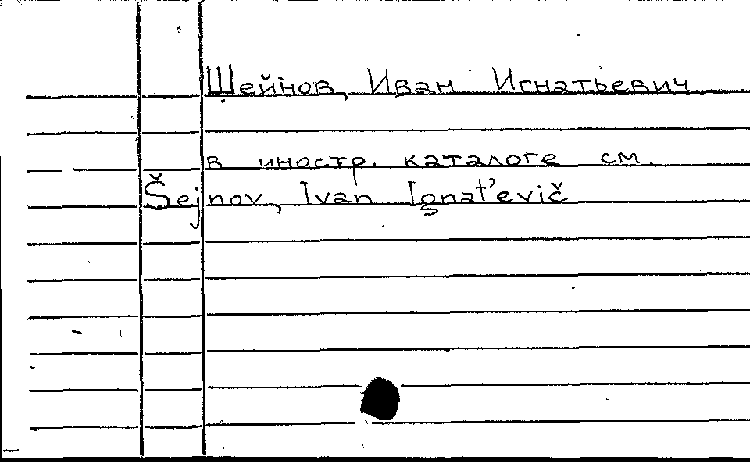 Шейнов, Иван Игнатьевич
в иностр. каталоге см.
Šejnov, Ivan Ignat'evič